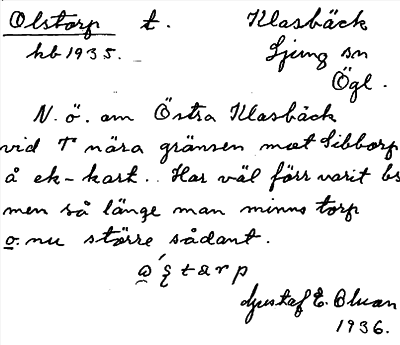 Olstorp t. Klasbäck
hb 1935. Ljung sn
Ögl.
N. ö. om Östra Klasbäck
vid T nära gränsen mot Sibborp
å ek-kart.. Har väl förr varit bs
men så länge man minns torp
o. nu större sådant.
Gustaf E. Olsson
1936.